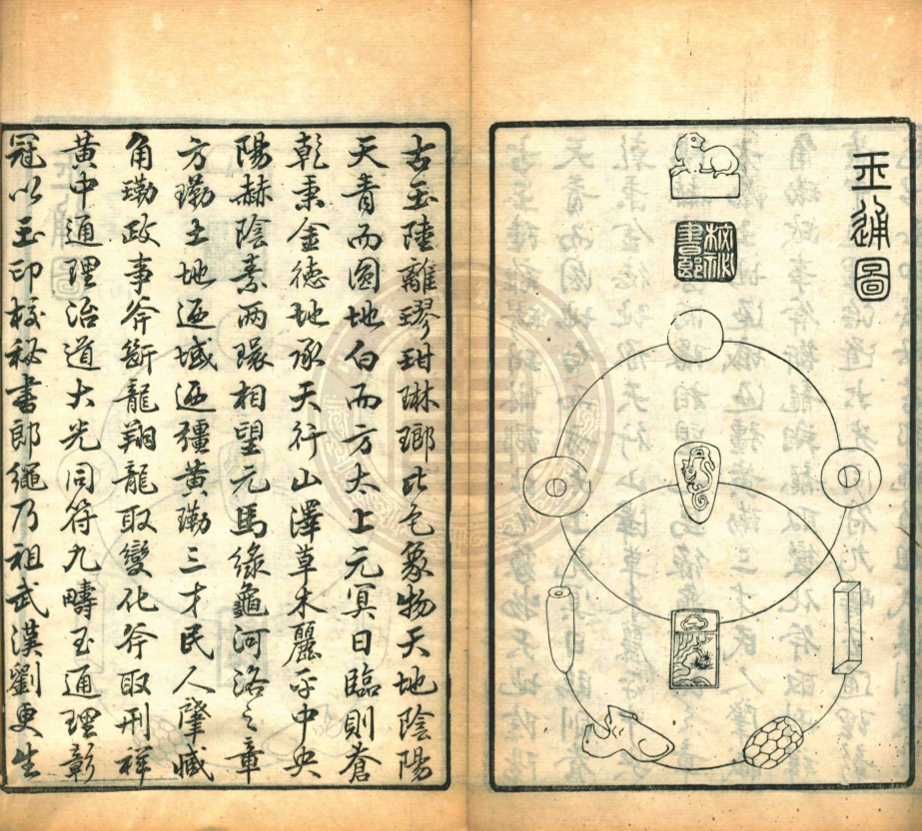 玉通圖
校祕書郎
古玉陸離璆玵琳瑯比色象物天地陰陽
天青而圓地白而方太上元冥日臨則蒼
乾秉金德地承天行山澤草木麗乎中央
陽赫陰素兩環相望元馬綠龜河洛之章
方土地迺域迺疆黃三才民人肇臧
角政事斧斷龍翔龍取變化斧取刑祥
黃中通理治道大光同符九疇玉通理彰
冠以玉印校秘書郎繩乃祖武漢劉更生